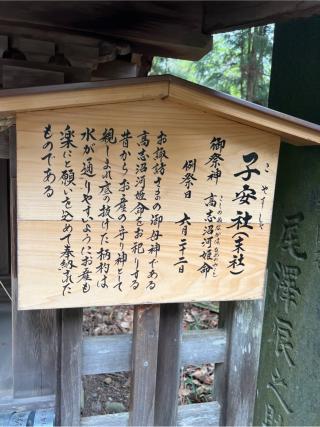 子安社(末社)
こやすしゃ
御祭神 高志沼河姫命
例祭日 六月二十二日
お諏訪さまの御母神である
高志沼河姫命をお祀りする
昔からお産の守り神として
親しまれ底の抜けた柄杓は
水が通りやすいようにお産も
楽にと願いを込めて奉納された
ものである
尾澤辰之助